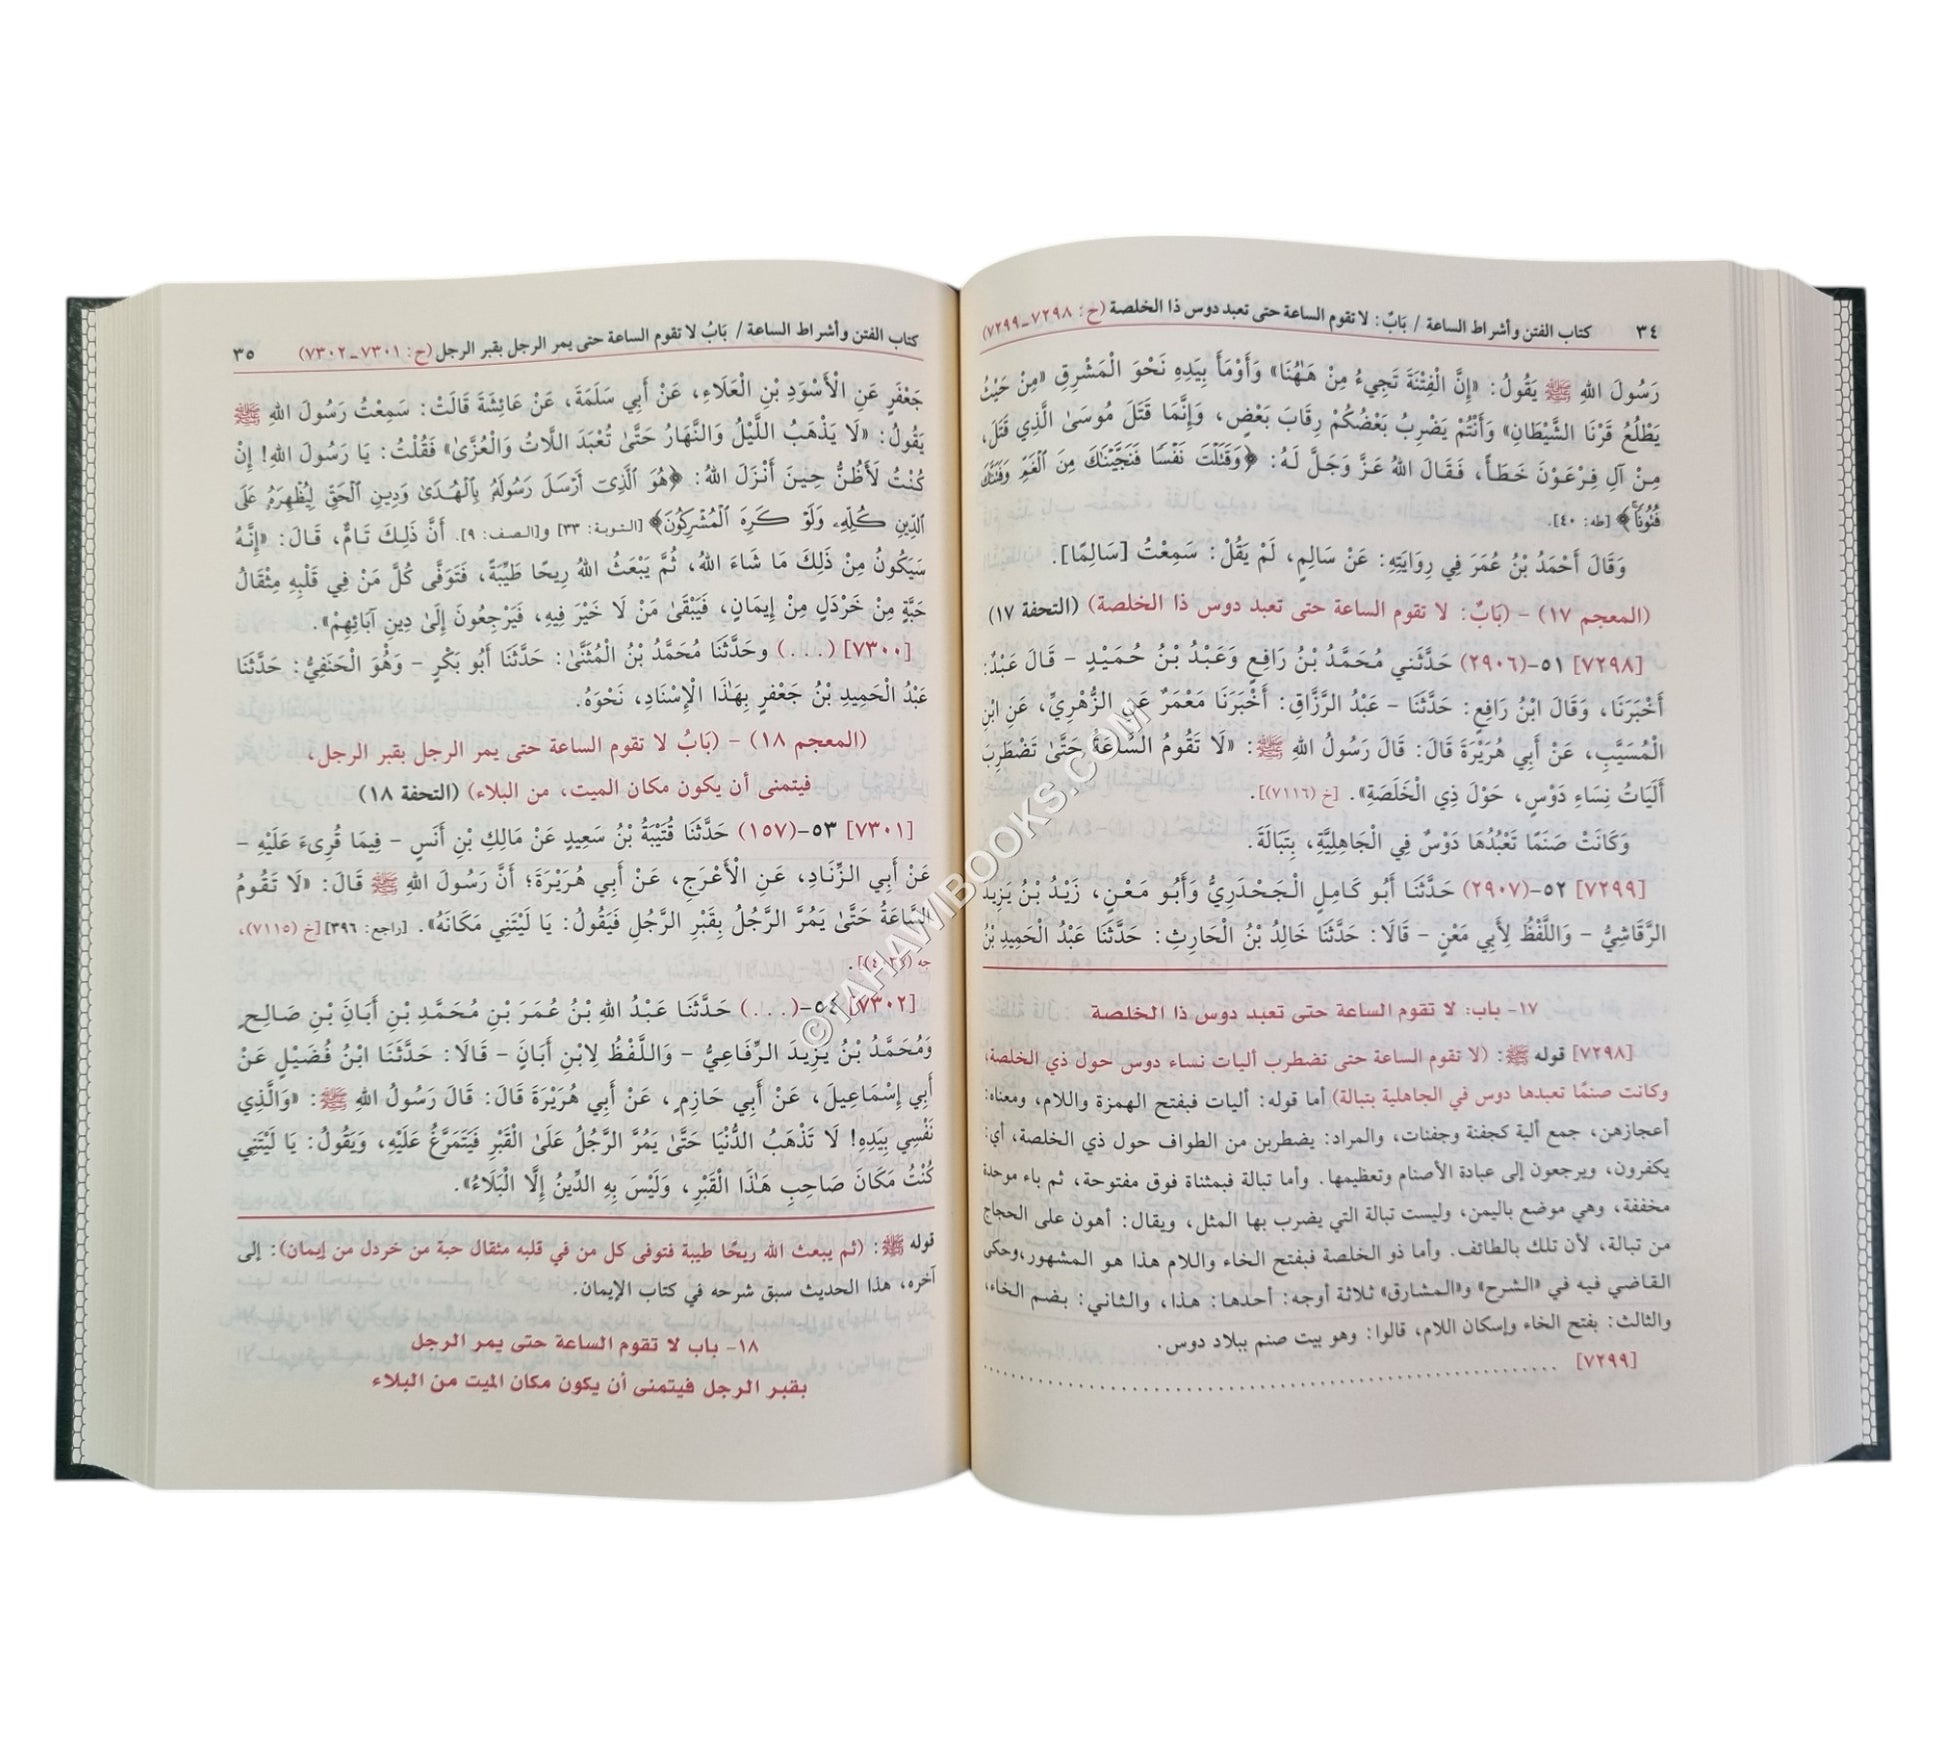 ٣٤ كتاب الفتن وأشراط الساعة / بَابٌ: لا تقوم الساعة حتى تعبد دوس ذا الخلصة (ح: ٧٢٩٨-٧٢٩٩)
رَسُولَ اللهِ ﷺ يَقُولُ: «إِنَّ الْفِتْنَةَ تَجِيءُ مِنْ هَـٰهُنَا» وَأَوْمَأَ بِيَدِهِ نَحْوَ الْمَشْرِقِ «مِنْ حَيْثُ
يَطْلُعُ قَرْنَا الشَّيْطَانِ» وَأَنْتُمْ يَضْرِبُ بَعْضُكُمْ رِقَابَ بَعْضٍ، وَإِنَّمَا قَتَلَ مُوسَىٰ الَّذِي قَتَلَ،
مِنْ آلِ فِرْعَوْنَ خَطَأً، فَقَالَ اللهُ عَزَّ وَجَلَّ لَهُ: ﴿وَقَتَلْتَ نَفْسًا فَنَجَّيْنَـٰكَ مِنَ ٱلْغَمِّ وَفَتَنَّـٰكَ
فُتُونًا﴾ [طه: ٤٠].
وَقَالَ أَحْمَدُ بْنُ عُمَرَ فِي رِوَايَتِهِ: عَنْ سَالِمٍ، لَمْ يَقُلْ: سَمِعْتُ [سَالِمًا].
(المعجم ١٧) - (بَابٌ: لا تقوم الساعة حتى تعبد دوس ذا الخلصة) (التحفة ١٧)
[٧٢٩٨] ٥١-(٢٩٠٦) حَدَّثَنِي مُحَمَّدُ بْنُ رَافِعٍ وَعَبْدُ بْنُ حُمَيْدٍ - قَالَ عَبْدٌ:
أَخْبَرَنَا، وَقَالَ ابْنُ رَافِعٍ: حَدَّثَنَا - عَبْدُ الرَّزَّاقِ: أَخْبَرَنَا مَعْمَرٌ عَنِ الزُّهْرِيِّ، عَنِ ابْنِ
الْمُسَيَّبِ، عَنْ أَبِي هُرَيْرَةَ قَالَ: قَالَ رَسُولُ اللهِ ﷺ: «لَا تَقُومُ السَّاعَةُ حَتَّىٰ تَضْطَرِبَ
أَلَيَاتُ نِسَاءِ دَوْسٍ، حَوْلَ ذِي الْخَلَصَةِ». [خ (٧١١٦)].
وَكَانَتْ صَنَمًا تَعْبُدُهَا دَوْسٌ فِي الْجَاهِلِيَّةِ، بِتَبَالَةَ.
[٧٢٩٩] ٥٢-(٢٩٠٧) حَدَّثَنَا أَبُو كَامِلٍ الْجَحْدَرِيُّ وَأَبُو مَعْنٍ، زَيْدُ بْنُ يَزِيدَ
الرَّقَاشِيُّ - وَاللَّفْظُ لِأَبِي مَعْنٍ - قَالَا: حَدَّثَنَا خَالِدُ بْنُ الْحَارِثِ: حَدَّثَنَا عَبْدُ الْحَمِيدِ بْنُ
١٧- باب: لا تقوم الساعة حتى تعبد دوس ذا الخلصة
[٧٢٩٨] قوله ﷺ: (لا تقوم الساعة حتى تضطرب أليات نساء دوس حول ذي الخلصة،
وكانت صنمًا تعبدها دوس في الجاهلية بتبالة) أما قوله: أليات فبفتح الهمزة واللام، ومعناه:
أعجازهن، جمع ألية كجفنة وجفنات، والمراد: يضطربن من الطواف حول ذي الخلصة، أي:
يكفرون، ويرجعون إلى عبادة الأصنام وتعظيمها. وأما تبالة فبمثناة فوق مفتوحة، ثم باء موحدة
مخففة، وهي موضع باليمن، وليست تبالة التي يضرب بها المثل، ويقال: أهون على الحجاج
من تبالة، لأن تلك بالطائف. وأما ذو الخلصة فبفتح الخاء واللام هذا هو المشهور،وحكى
القاضي فيه في «الشرح» و«المشارق» ثلاثة أوجه: أحدها: هذا، والثاني: بضم الخاء،
والثالث: بفتح الخاء وإسكان اللام، قالوا: وهو بيت صنم ببلاد دوس.
[٧٢٩٩] ................................................
كتاب الفتن وأشراط الساعة / بَابُ لا تقوم الساعة حتى يمر الرجل بقبر الرجل (ح: ٧٣٠١-٧٣٠٢) ٣٥
جَعْفَرٍ عَنِ الْأَسْوَدِ بْنِ الْعَلَاءِ، عَنْ أَبِي سَلَمَةَ، عَنْ عَائِشَةَ قَالَتْ: سَمِعْتُ رَسُولَ اللهِ ﷺ
يَقُولُ: «لَا يَذْهَبُ اللَّيْلُ وَالنَّهَارُ حَتَّىٰ تُعْبَدَ اللَّاتُ وَالْعُزَّىٰ» فَقُلْتُ: يَا رَسُولَ اللهِ! إِنْ
كُنْتُ لَأَظُنُّ حِينَ أَنْزَلَ اللهُ: ﴿هُوَ ٱلَّذِىٓ أَرْسَلَ رَسُولَهُۥ بِٱلْهُدَىٰ وَدِينِ ٱلْحَقِّ لِيُظْهِرَهُۥ عَلَى
ٱلدِّينِ كُلِّهِۦ وَلَوْ كَرِهَ ٱلْمُشْرِكُونَ﴾ [التوبة: ٣٣] و[الصف: ٩]. أَنَّ ذَلِكَ تَامٌّ، قَالَ: «إِنَّهُ
سَيَكُونُ مِنْ ذَلِكَ مَا شَاءَ اللهُ، ثُمَّ يَبْعَثُ اللهُ رِيحًا طَيِّبَةً، فَتَوَفَّى كُلَّ مَنْ فِي قَلْبِهِ مِثْقَالُ
حَبَّةٍ مِنْ خَرْدَلٍ مِنْ إِيمَانٍ، فَيَبْقَىٰ مَنْ لَا خَيْرَ فِيهِ، فَيَرْجِعُونَ إِلَىٰ دِينِ آبَائِهِمْ».
[٧٣٠٠] (...) وحَدَّثَنَا مُحَمَّدُ بْنُ الْمُثَنَّىٰ: حَدَّثَنَا أَبُو بَكْرٍ - وَهُوَ الْحَنَفِيُّ: حَدَّثَنَا
عَبْدُ الْحَمِيدِ بْنُ جَعْفَرٍ بِهَـٰذَا الْإِسْنَادِ، نَحْوَهُ.
(المعجم ١٨) - (بَابُ لا تقوم الساعة حتى يمر الرجل بقبر الرجل،
فيتمنى أن يكون مكان الميت، من البلاء) (التحفة ١٨)
[٧٣٠١] ٥٣-(١٥٧) حَدَّثَنَا قُتَيْبَةُ بْنُ سَعِيدٍ عَنْ مَالِكِ بْنِ أَنَسٍ - فِيمَا قُرِىءَ عَلَيْهِ -
عَنْ أَبِي الزِّنَادِ، عَنِ الْأَعْرَجِ، عَنْ أَبِي هُرَيْرَةَ؛ أَنَّ رَسُولَ اللهِ ﷺ قَالَ: «لَا تَقُومُ
السَّاعَةُ حَتَّىٰ يَمُرَّ الرَّجُلُ بِقَبْرِ الرَّجُلِ فَيَقُولُ: يَا لَيْتَنِي مَكَانَهُ». [راجع: ٣٩٦] [خ (٧١١٥)،
جه].
[٧٣٠٢] ٥٤-(...) حَدَّثَنَا عَبْدُ اللهِ بْنُ عُمَرَ بْنِ مُحَمَّدِ بْنِ أَبَانَ بْنِ صَالِحٍ
وَمُحَمَّدُ بْنُ يَزِيدَ الرِّفَاعِيُّ - وَاللَّفْظُ لِابْنِ أَبَانَ - قَالَا: حَدَّثَنَا ابْنُ فُضَيْلٍ عَنْ
أَبِي إِسْمَاعِيلَ، عَنْ أَبِي حَازِمٍ، عَنْ أَبِي هُرَيْرَةَ قَالَ: قَالَ رَسُولُ اللهِ ﷺ: «وَالَّذِي
نَفْسِي بِيَدِهِ! لَا تَذْهَبُ الدُّنْيَا حَتَّىٰ يَمُرَّ الرَّجُلُ عَلَىٰ الْقَبْرِ فَيَتَمَرَّغُ عَلَيْهِ، وَيَقُولُ: يَا لَيْتَنِي
كُنْتُ مَكَانَ صَاحِبِ هَـٰذَا الْقَبْرِ، وَلَيْسَ بِهِ الدِّينُ إِلَّا الْبَلَاءُ».
قوله ﷺ: (ثم يبعث الله ريحًا طيبة فتوفى كل من في قلبه مثقال حبة من خردل من إيمان): إلى
آخره، هذا الحديث سبق شرحه في كتاب الإيمان.
١٨- باب لا تقوم الساعة حتى يمر الرجل
بقبر الرجل فيتمنى أن يكون مكان الميت من البلاء
©TAHAWIBOOKS.COM